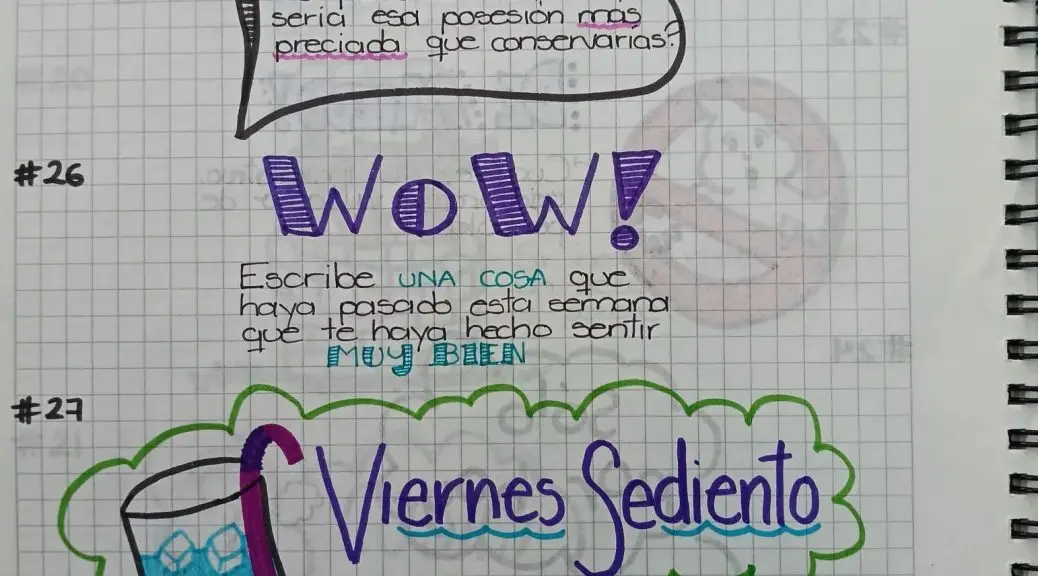 sería esa posesión más
preciada que conservarías?
#26
WoW!
Escribe UNA COSA que
haya pasado esta semana
que te haya hecho sentir
MUY BIEN
#27
Viernes Sediento